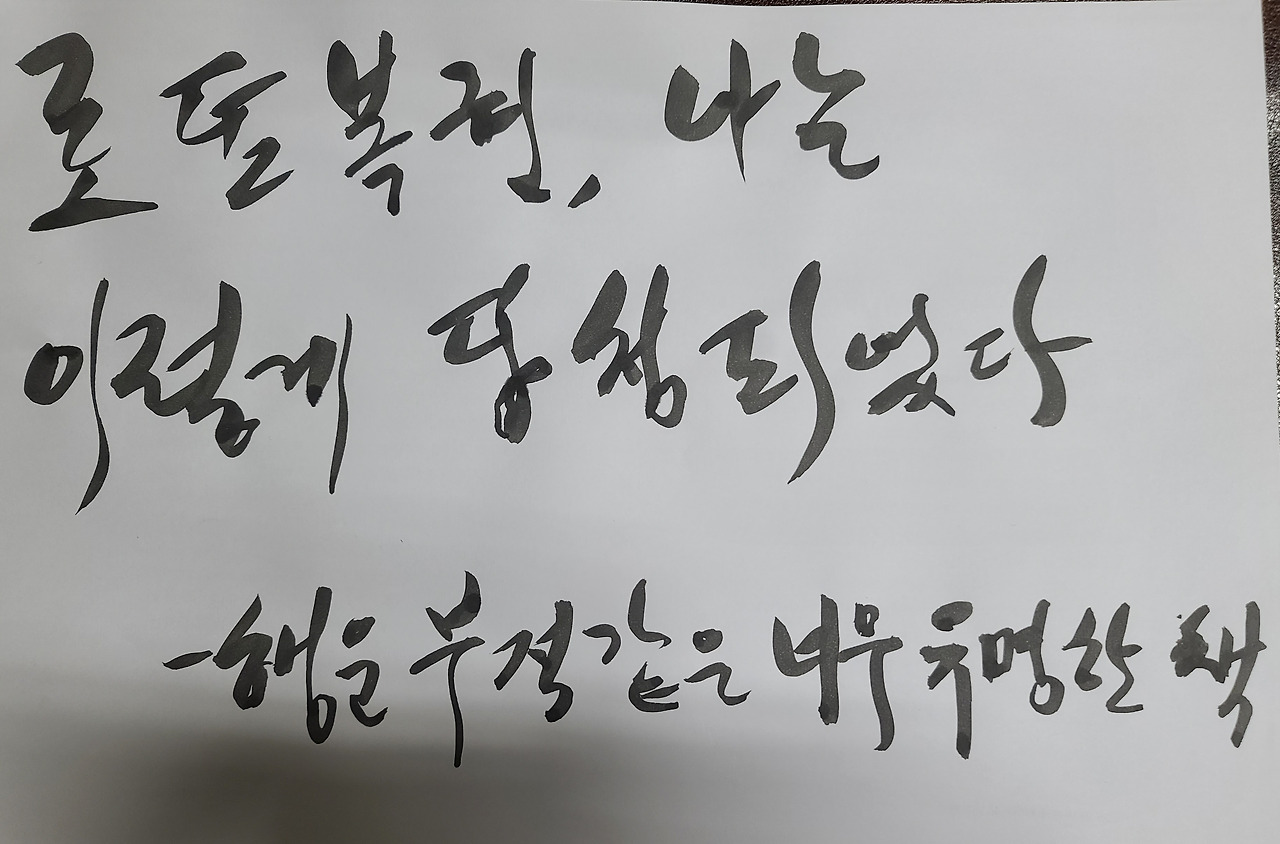 로또복권, 나는
이렇게 당첨되었다
-행운부적같은 너무유명한 책